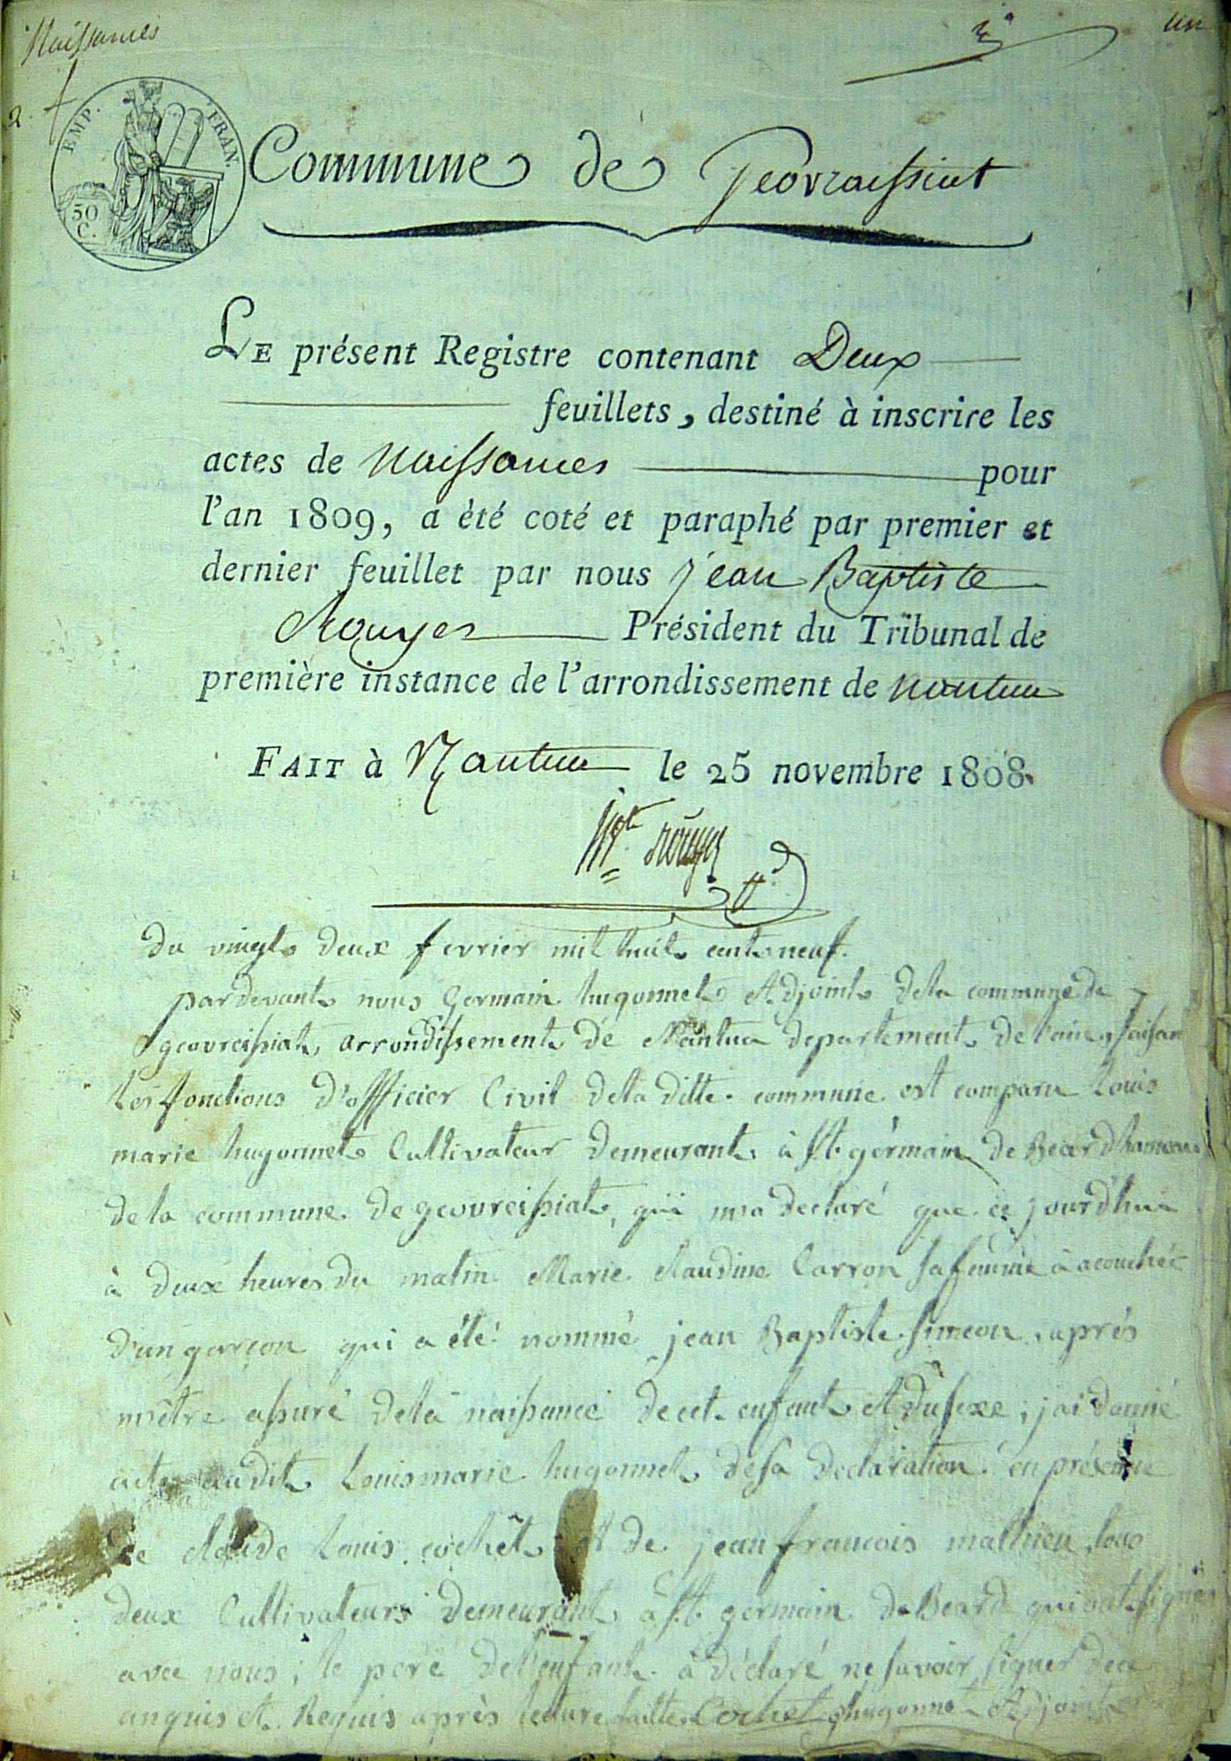 Naissances
un
2.
EMP. FRAN.
50
C.
Commune de Geovraissiat
LE présent Registre contenant Deux
feuillets, destiné à inscrire les
actes de Naissances pour
l'an 1809, a été coté et paraphé par premier et
dernier feuillet par nous jean Baptiste
Rouyer Président du Tribunal de
première instance de l'arrondissement de nantua
FAIT à Nantua le 25 novembre 1808.
Rouyer
du vingt deux fevrier mil huit cent neuf.
pardevant nous Germain hugonnet Adjoint dela commune de
geovreissiat, arrondissement de Nantua departement de l'ain, faisant
les fonctions d'officier Civil dela ditte commune est comparu Louis
marie hugonnet Cultivateur demeurant à st. germain de Beard hameau
dela commune de geovreissiat, qui ma declaré que ce jourd'hui
à deux heures du matin Marie Claudine Carron sa femme à acouchée
d'un garçon qui a été nommé jean Baptiste simeon, après
mêtre assuré dela naissance de cet enfant Et du sexe; j'ai donné
acte audit Louis marie hugonnet desa declaration en présence
de claude Louis cochet Et de jean francois mathieu tous
deux Cultivateurs demeurant à st. germain de Beard qui ont signés
avec nous; le pere del'enfant à déclaré ne savoir signer dece
anquis et Requis après lecture faitte Cochet hugonnet Adjoint